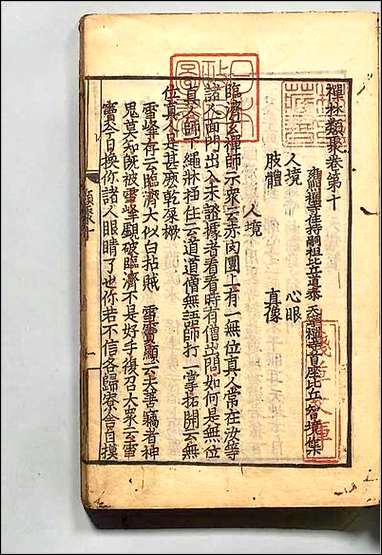 禪林類聚卷第十
禪寺住持嗣祖比丘道泰 禪寺首座比丘智境集
人境 心眼
肢體 真像
人境
臨濟玄禪師示衆云赤肉團上有一無位真人常在汝等
諸人面門出入未證據者看看時有僧出問如何是無位
真人師下繩牀住云道道僧無語師打一掌拓開云無
位真人是甚麽乾屎橛
雪峰存云臨濟大似白拈賊 雪竇顯云夫善竊者神
鬼莫知既被雪峰覷破臨濟不是好手後召大衆云雪
竇今日換你諸人眼睛了也你若不信各歸寮舍自摸
類聚十
淺草文庫